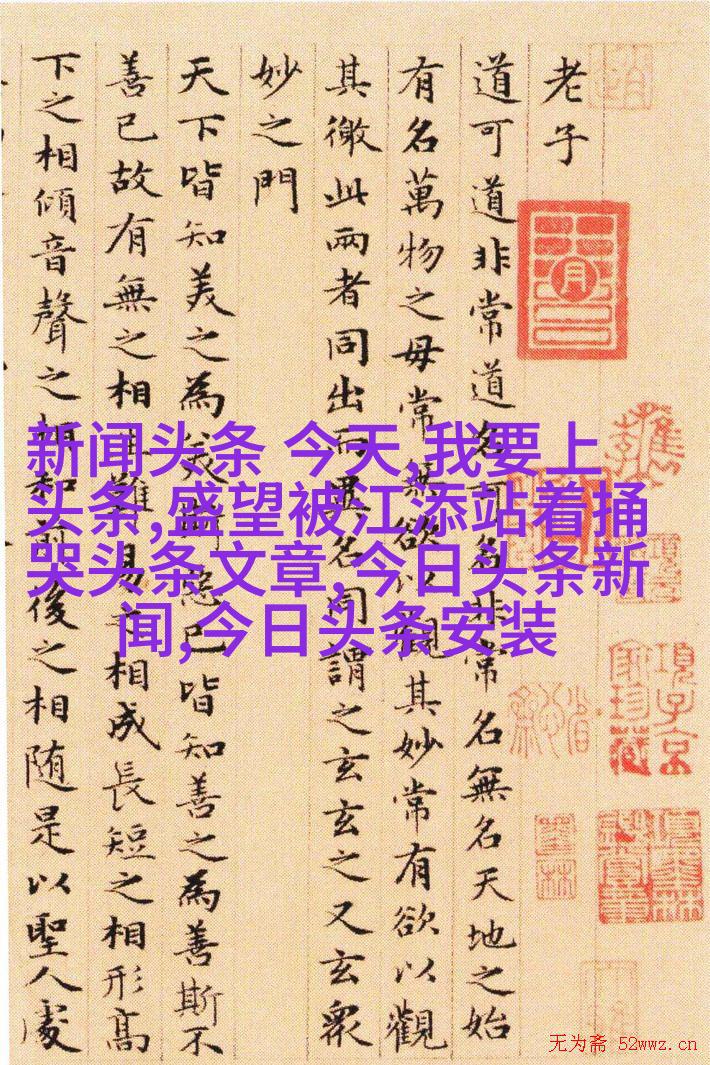 老子
道可道非常道名可名非常名無名天地之始
有名萬物之母常無欲以觀其妙常有欲以觀
其徼此兩者同出而異名同謂之玄玄之又玄衆
妙之門
天下皆知美之為美斯惡已皆知善之為善斯不
善已故有無之相生難易之相成長短之相形高
下之相傾音聲之相和前後之相随是以聖人處
新闻头条 今天,我要上
头条,盛望被江添站着捅
哭头条文章,今日头条新
闻,今日头条安装
項子京
家珍藏
无为斋 52wwz.cn